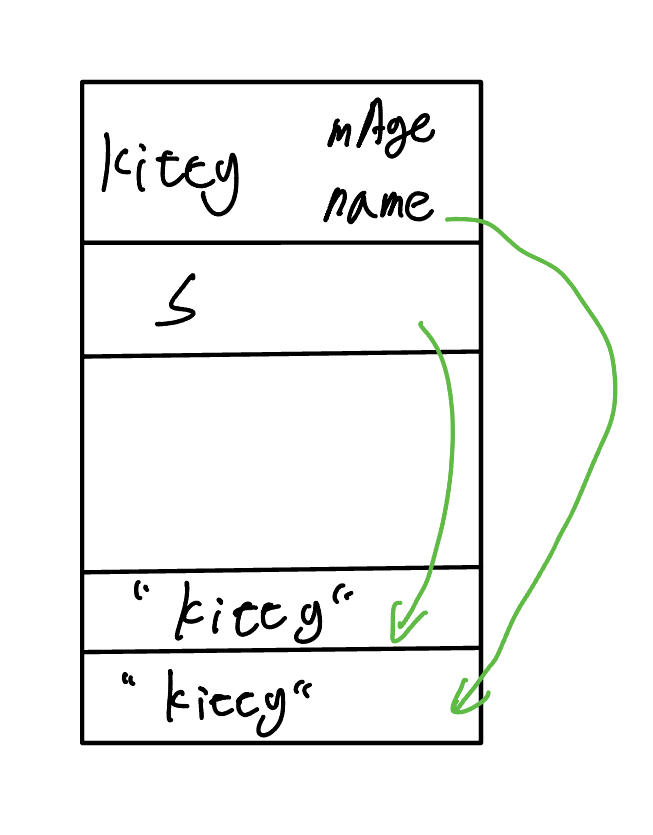 kitty
mAge
name
S
"kitty"
"kitty"